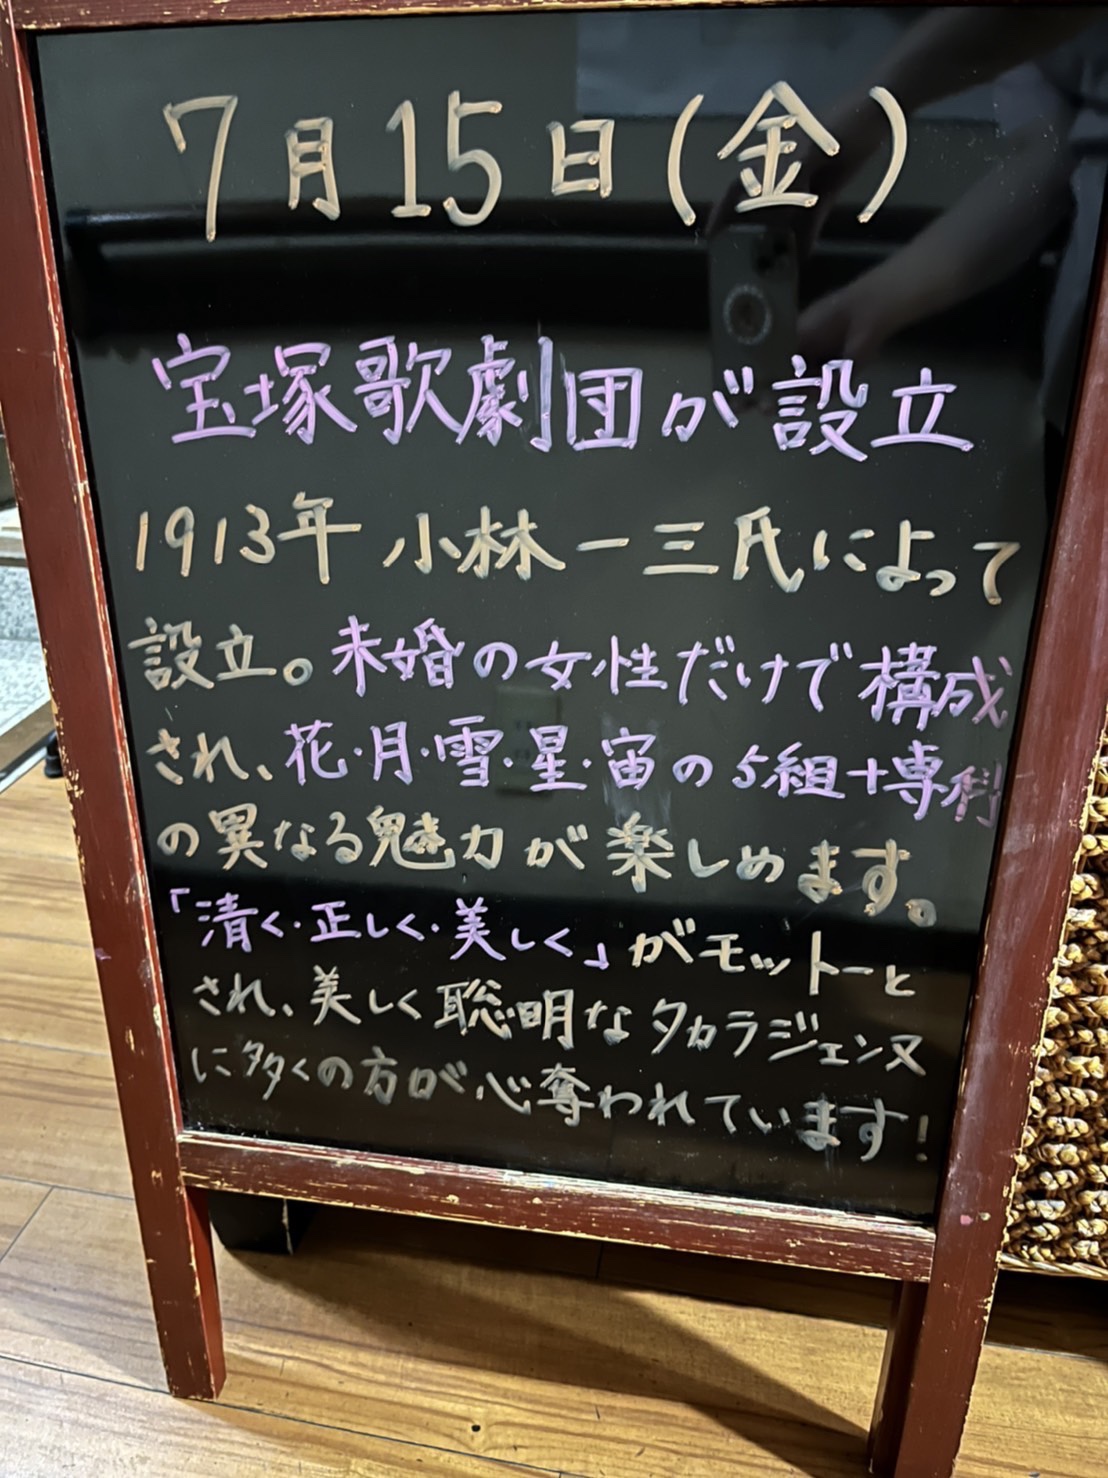 7月15日(金)
宝塚歌劇団が設立
1913年 小林一三氏によって
設立。未婚の女性だけで構成
され、花・月・雪・星・宙の5組+専科
の異なる魅力が楽しめます。
「清く・正しく・美しく」がモットーと
され、美しく聡明なタカラジェンヌ
に多くの方が心奪われています!